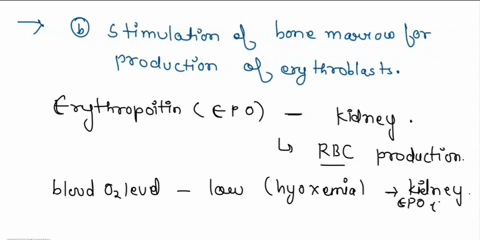 → (b) Stimulation of bone marrow for
production of erythroblasts.
Erythropoitin (EPO) – kidney.
↳ RBC production.
blood O2 level – low (hyoxemia) → kidney
EPO↑